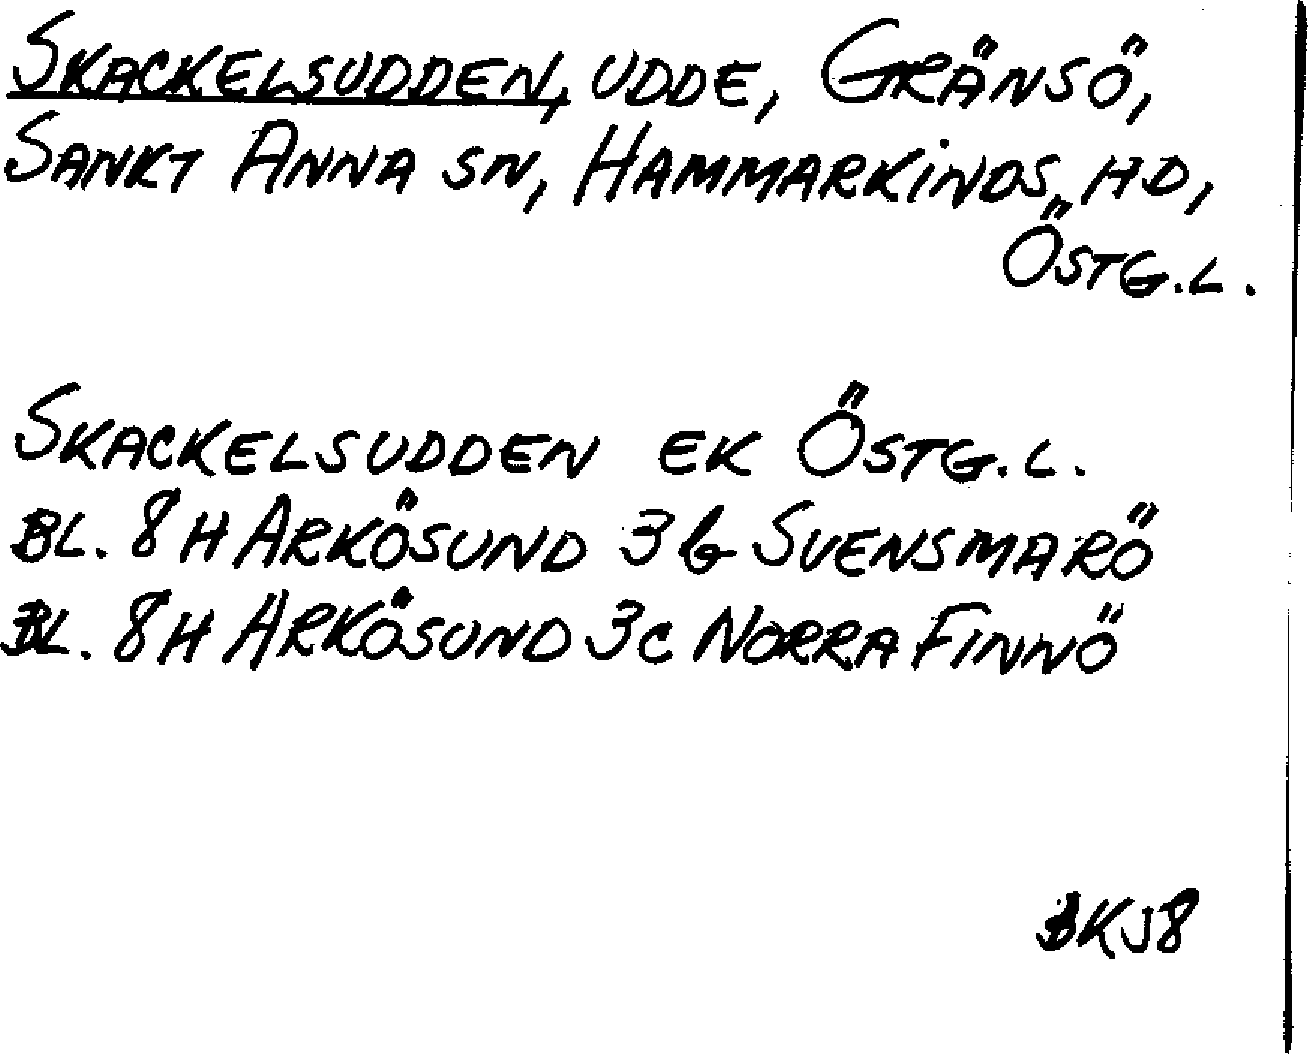 SKACKELSUDDEN, UDDE, GRÄNSÖ,
SANKT ANNA SN, HAMMARKINDS HD,
ÖSTG.L.
SKACKELSUDDEN EK ÖSTG.L.
BL. 8H ARKÖSUND 3b SVENSMARÖ
BL. 8H ARKÖSUND 3C NORRA FINNÖ
BKJ8